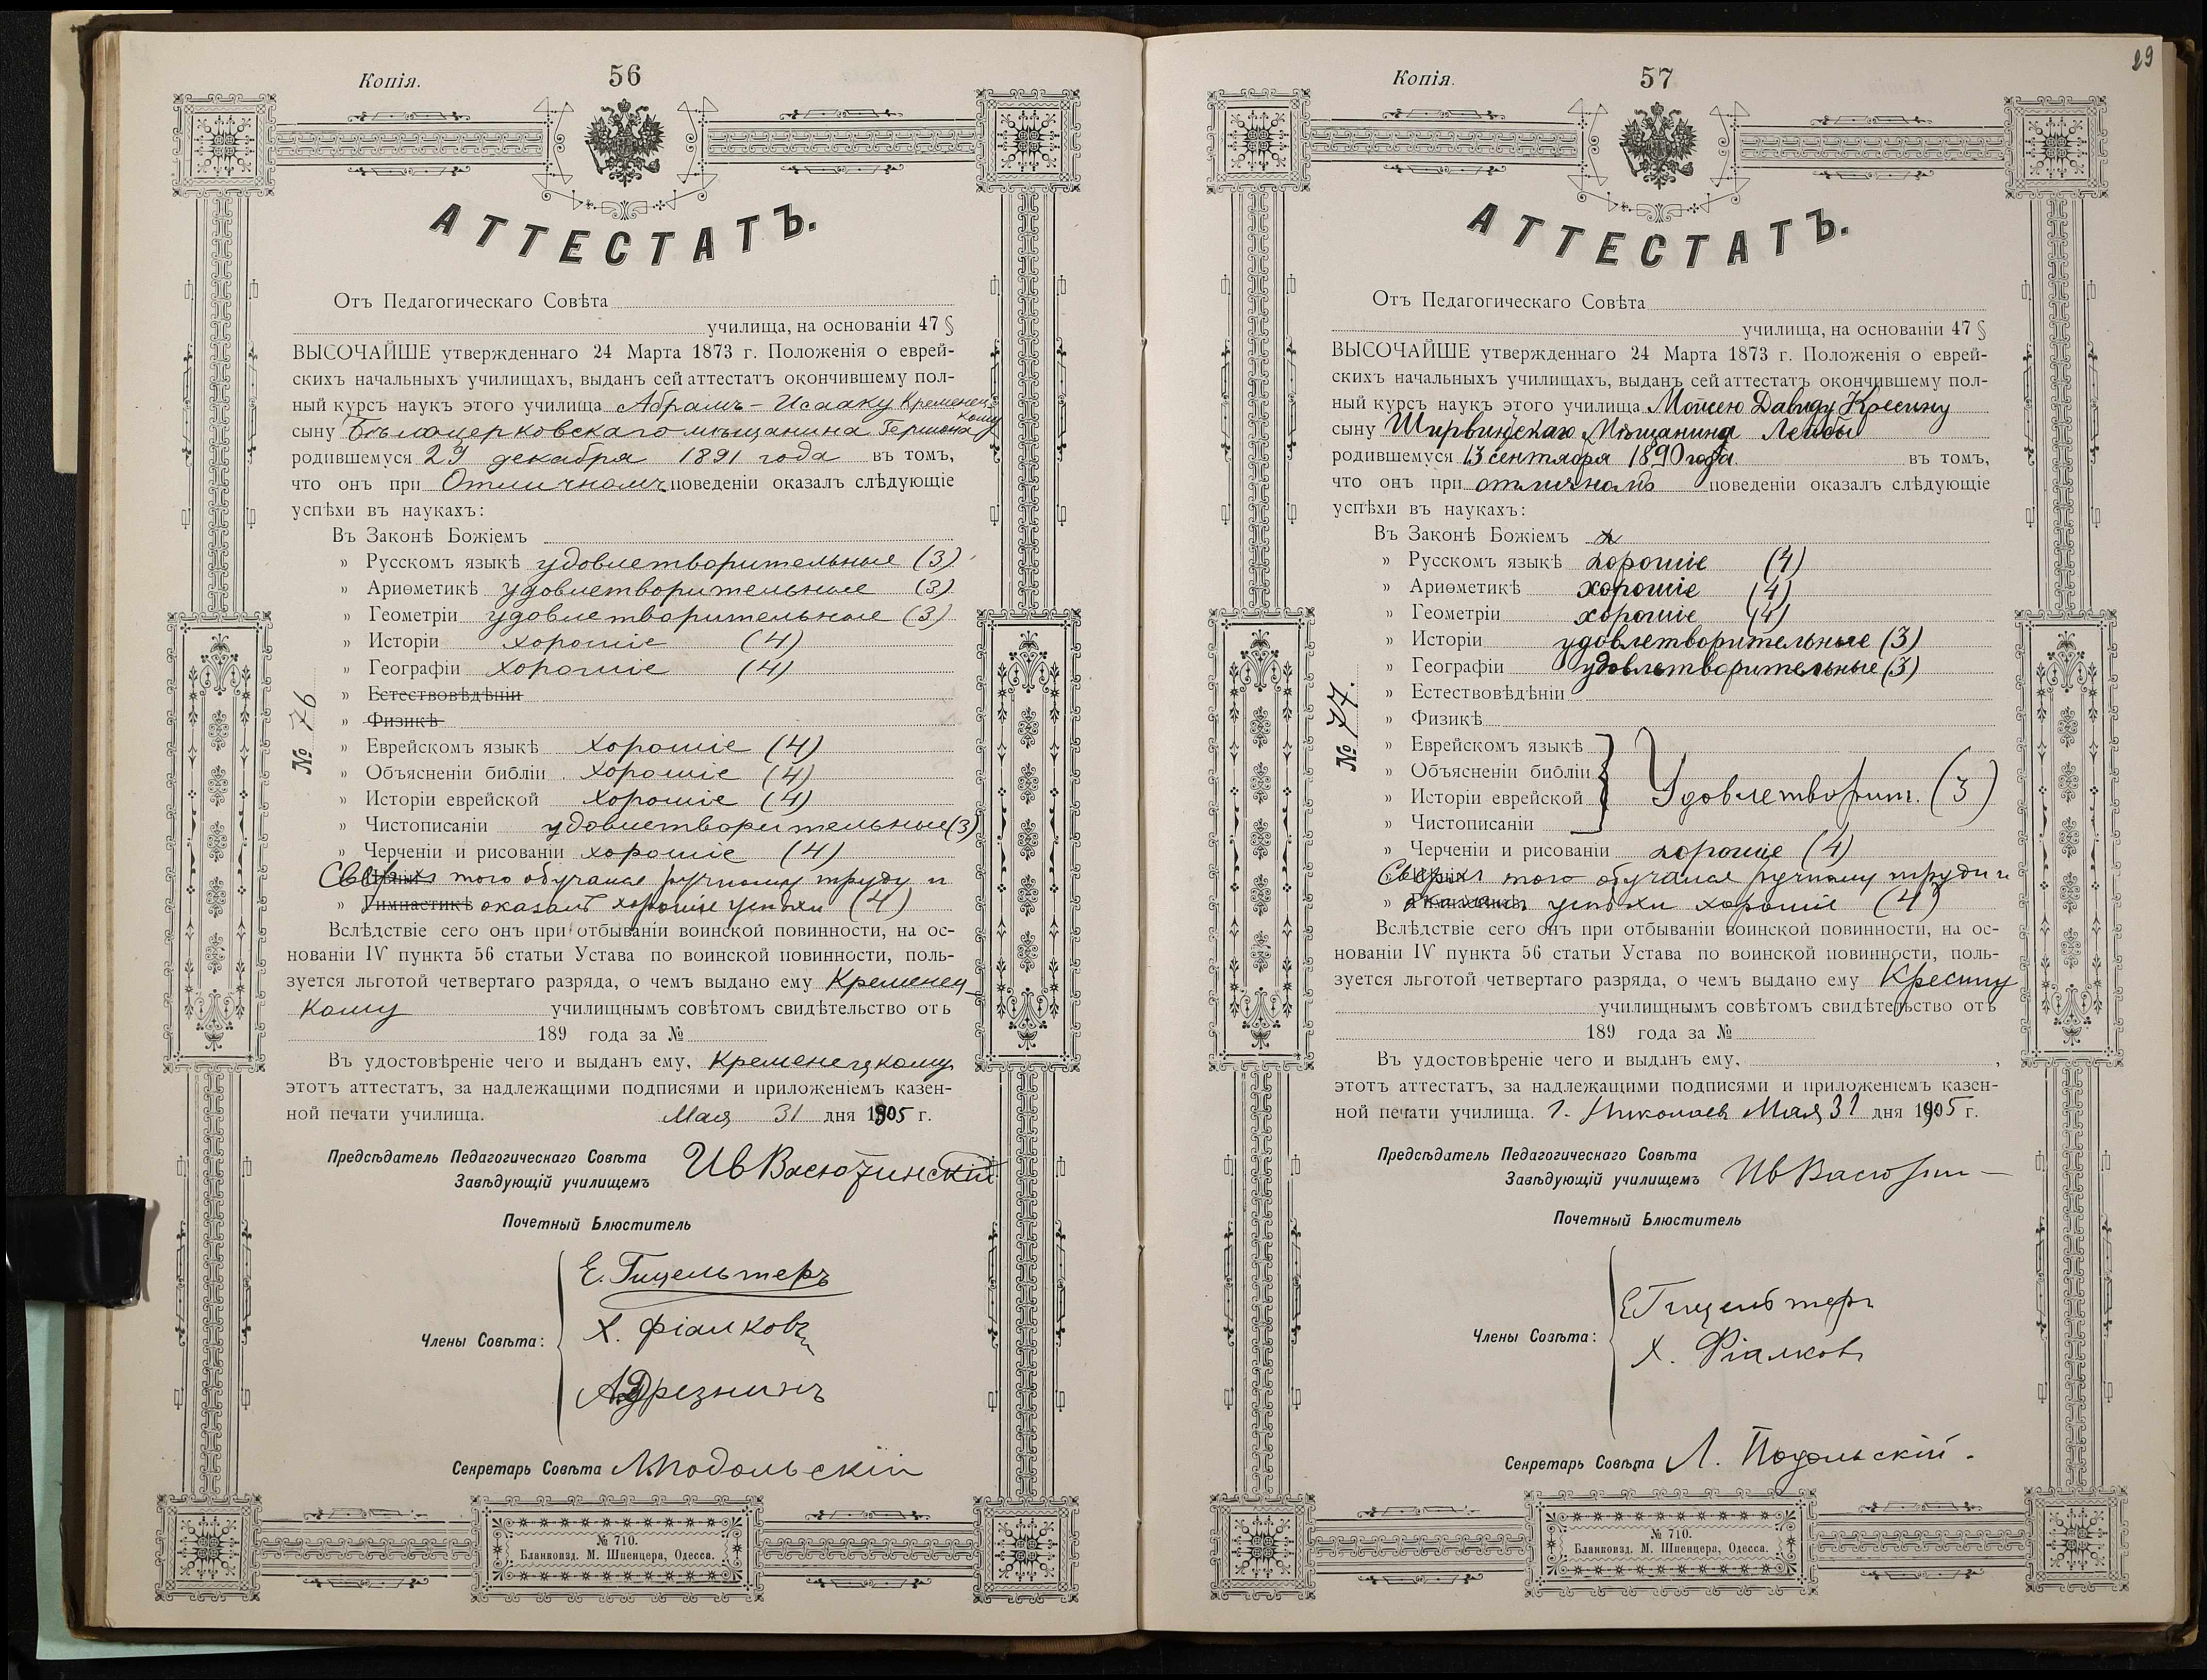 Копія.
56
АТТЕСТАТЪ.
Отъ Педагогическаго Совѣта
училища, на основаніи 47 §
ВЫСОЧАЙШЕ утвержденнаго 24 Марта 1873 г. Положенія о еврей-
скихъ начальныхъ училищахъ, выданъ сей аттестатъ окончившему пол-
ный курсъ наукъ этого училища Абрамъ-Исааку Кременец-
кому
сыну Бѣлоцерковскаго мѣщанина Гершона
родившемуся 29 декабря 1891 года въ томъ,
что онъ при Отличномъ поведеніи оказалъ слѣдующіе
успѣхи въ наукахъ:
Въ Законѣ Божіемъ
» Русскомъ языкѣ удовлетворительные (3)
» Ариѳметикѣ удовлетворительные (3)
» Геометріи удовлетворительные (3)
» Исторіи хорошіе (4)
» Географіи хорошіе (4)
» Естествовѣдѣніи
» Физикѣ
» Еврейскомъ языкѣ хорошіе (4)
» Объясненіи библіи хорошіе (4)
» Исторіи еврейской хорошіе (4)
» Чистописаніи удовлетворительные (3)
» Черченіи и рисованіи хорошіе (4)
Сверхъ того обучался ручному труду и
» Гимнастикѣ оказалъ хорошіе успѣхи (4)
Вслѣдствіе сего онъ при отбываніи воинской повинности, на ос-
нованіи IV пункта 56 статьи Устава по воинской повинности, поль-
зуется льготой четвертаго разряда, о чемъ выдано ему Кременец-
кому училищнымъ совѣтомъ свидѣтельство отъ
189 года за №
Въ удостовѣреніе чего и выданъ ему, Кременецкому
этотъ аттестатъ, за надлежащими подписями и приложеніемъ казен-
ной печати училища. Мая 31 дня 1905 г.
№ 76
Предсѣдатель Педагогическаго Совѣта
Завѣдующій училищемъ Ив Васютинскій
Почетный Блюститель
Е. Гицельтеръ
Х. Фіалковъ
Члены Совѣта:
А. Дрезнинъ
Секретарь Совѣта Л. Подольскій
№ 710.
Бланкоизд. М. Шпенцера, Одесса.
29
Копія.
57
АТТЕСТАТЪ.
Отъ Педагогическаго Совѣта
училища, на основаніи 47 §
ВЫСОЧАЙШЕ утвержденнаго 24 Марта 1873 г. Положенія о еврей-
скихъ начальныхъ училищахъ, выданъ сей аттестатъ окончившему пол-
ный курсъ наукъ этого училища Мойсею Давиду Кресину
сыну Ширвинскаго Мѣщанина Лейбы
родившемуся 13 сентября 1890 года. въ томъ,
что онъ при отличномъ поведеніи оказалъ слѣдующіе
успѣхи въ наукахъ:
Въ Законѣ Божіемъ
» Русскомъ языкѣ хорошіе (4)
» Ариѳметикѣ хорошіе (4)
» Геометріи хорошіе (4)
» Исторіи удовлетворительные (3)
» Географіи удовлетворительные (3)
» Естествовѣдѣніи
» Физикѣ
» Еврейскомъ языкѣ
» Объясненіи библіи
» Исторіи еврейской Удовлетворит. (3)
» Чистописаніи
» Черченіи и рисованіи хорошіе (4)
Сверхъ того обучался ручному труду и
» оказалъ успѣхи хорошіе (4)
Вслѣдствіе сего онъ при отбываніи воинской повинности, на ос-
нованіи IV пункта 56 статьи Устава по воинской повинности, поль-
зуется льготой четвертаго разряда, о чемъ выдано ему Кресину
училищнымъ совѣтомъ свидѣтельство отъ
189 года за №
Въ удостовѣреніе чего и выданъ ему, ,
этотъ аттестатъ, за надлежащими подписями и приложеніемъ казен-
ной печати училища. Г. Николаев Мая 31 дня 1905 г.
№ 77.
Предсѣдатель Педагогическаго Совѣта
Завѣдующій училищемъ Ив Васютин
Почетный Блюститель
Е Гицельтеръ
Члены Совѣта:
Х. Фіалковъ
Секретарь Совѣта Л. Подольскій.
№ 710.
Бланкоизд. М. Шпенцера, Одесса.